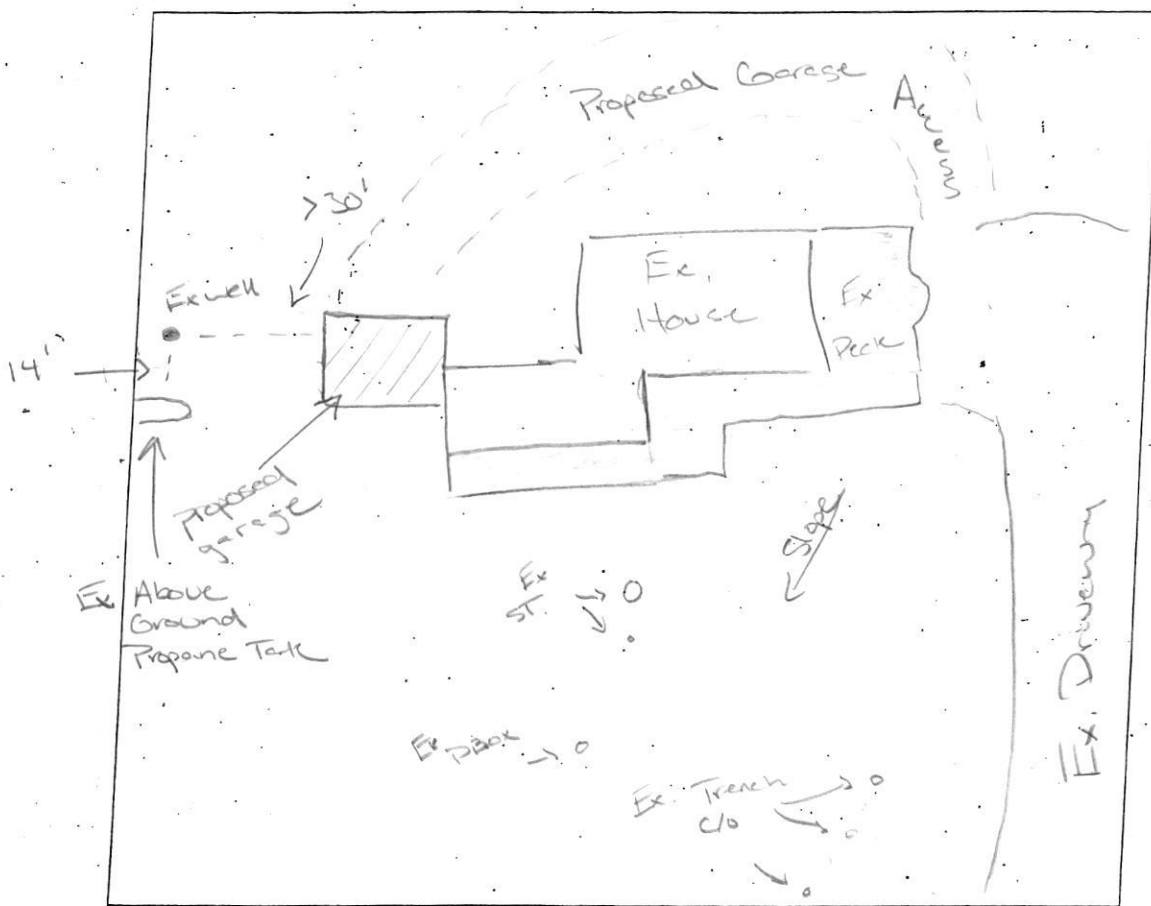 Proposed Garage
Access
>30'
Ex well
Ex.
House
Ex
Deck
14'
proposed
garage
Slope
Ex Above
Ground
Propane Tank
Ex
ST.
Ex DBox
Ex. Trench
c/o
Ex. Driveway